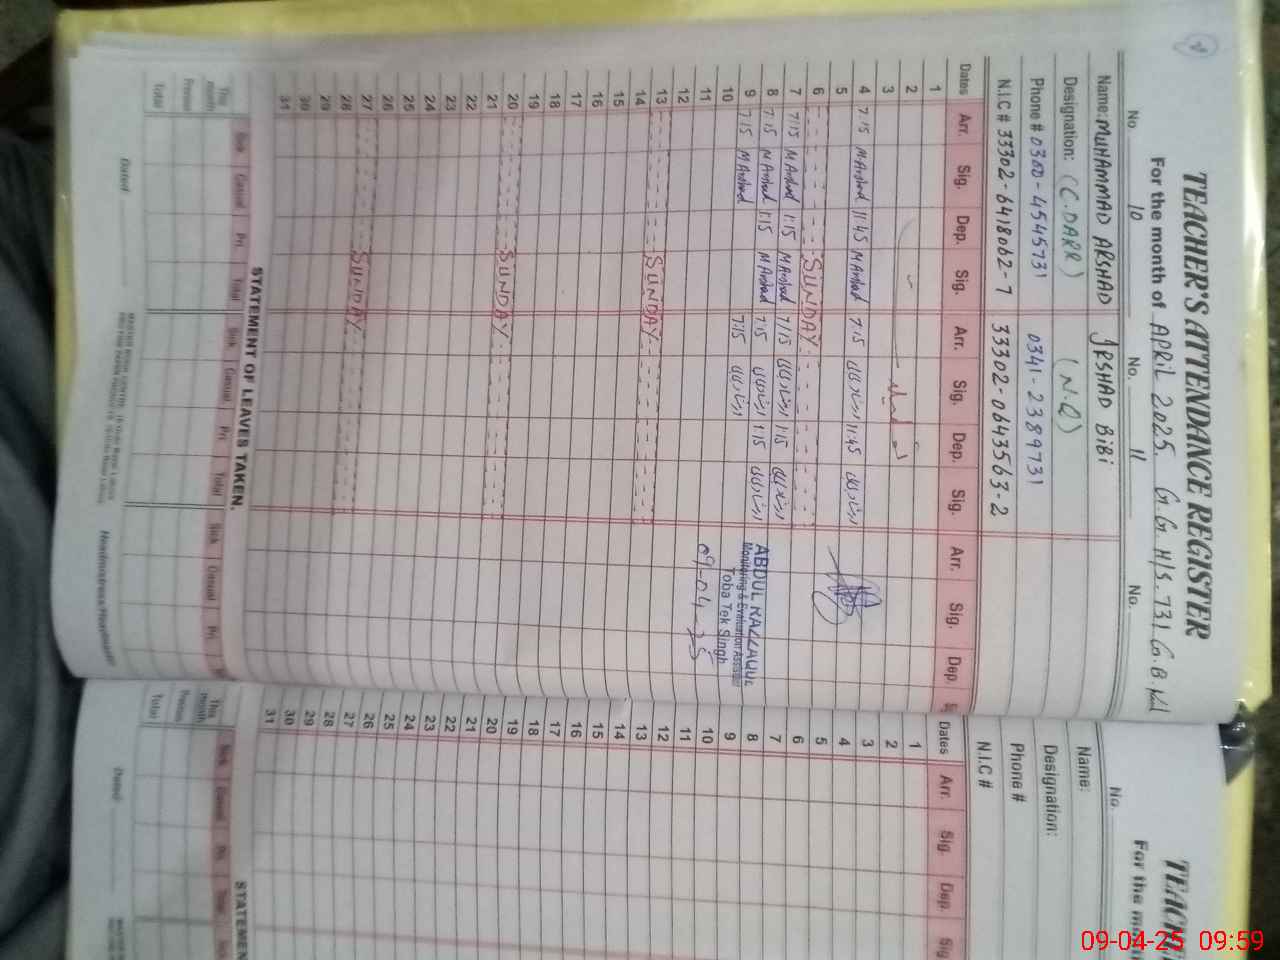 TEACHER'S ATTENDANCE REGISTER
For the month of APRIL 2025. G.G.H/S.731 G.B.
No. 10 No. 11 No.
Name: MUHAMMAD ARSHAD IRSHAD BIBI
Designation: (C.DARR) (N.Q)
Phone # 0300-4545731 0341-2389731
N.I.C # 33302-6418062-7 33302-0643563-2
Dates Arr. Sig. Dep. Sig. Arr. Sig. Dep. Sig. Arr. Sig. Dep.
1
2
3
4 7:15 MArshad 11:45 MArshad 7:15 ارشاد 11:45 ارشاد
5
6 SUNDAY
7 7:15 MArshad 1:15 MArshad 7:15 ارشاد 1:15 ارشاد
8 7:15 MArshad 1:15 MArshad 7:15 ارشاد 1:15 ارشاد
9 7:15 MArshad 7:15 ارشاد
ABDUL RAZZAQUE
Monitoring & Evaluation Assistant
Toba Tek Singh
09-04-25
10
11
12
13 SUNDAY
14
15
16
17
18
19
20 SUNDAY
21
22
23
24
25
26
27 SUNDAY
28
29
30
31
STATEMENT OF LEAVES TAKEN.
Sick Casual Pri. Total Sick Casual Pri. Total Sick Casual Pri.
This month
Previous
Total
Dated Headmistress/Headmaster
TEACH
For the mon
No.
Name:
Designation:
Phone #
N.I.C #
Dates Arr. Sig. Dep. Sig.
1
2
3
4
5
6
7
8
9
10
11
12
13
14
15
16
17
18
19
20
21
22
23
24
25
26
27
28
29
30
31
STATEMEN
Sick Casual Pri. Total Sick
This month
Previous
Total
Dated
09-04-25 09:59